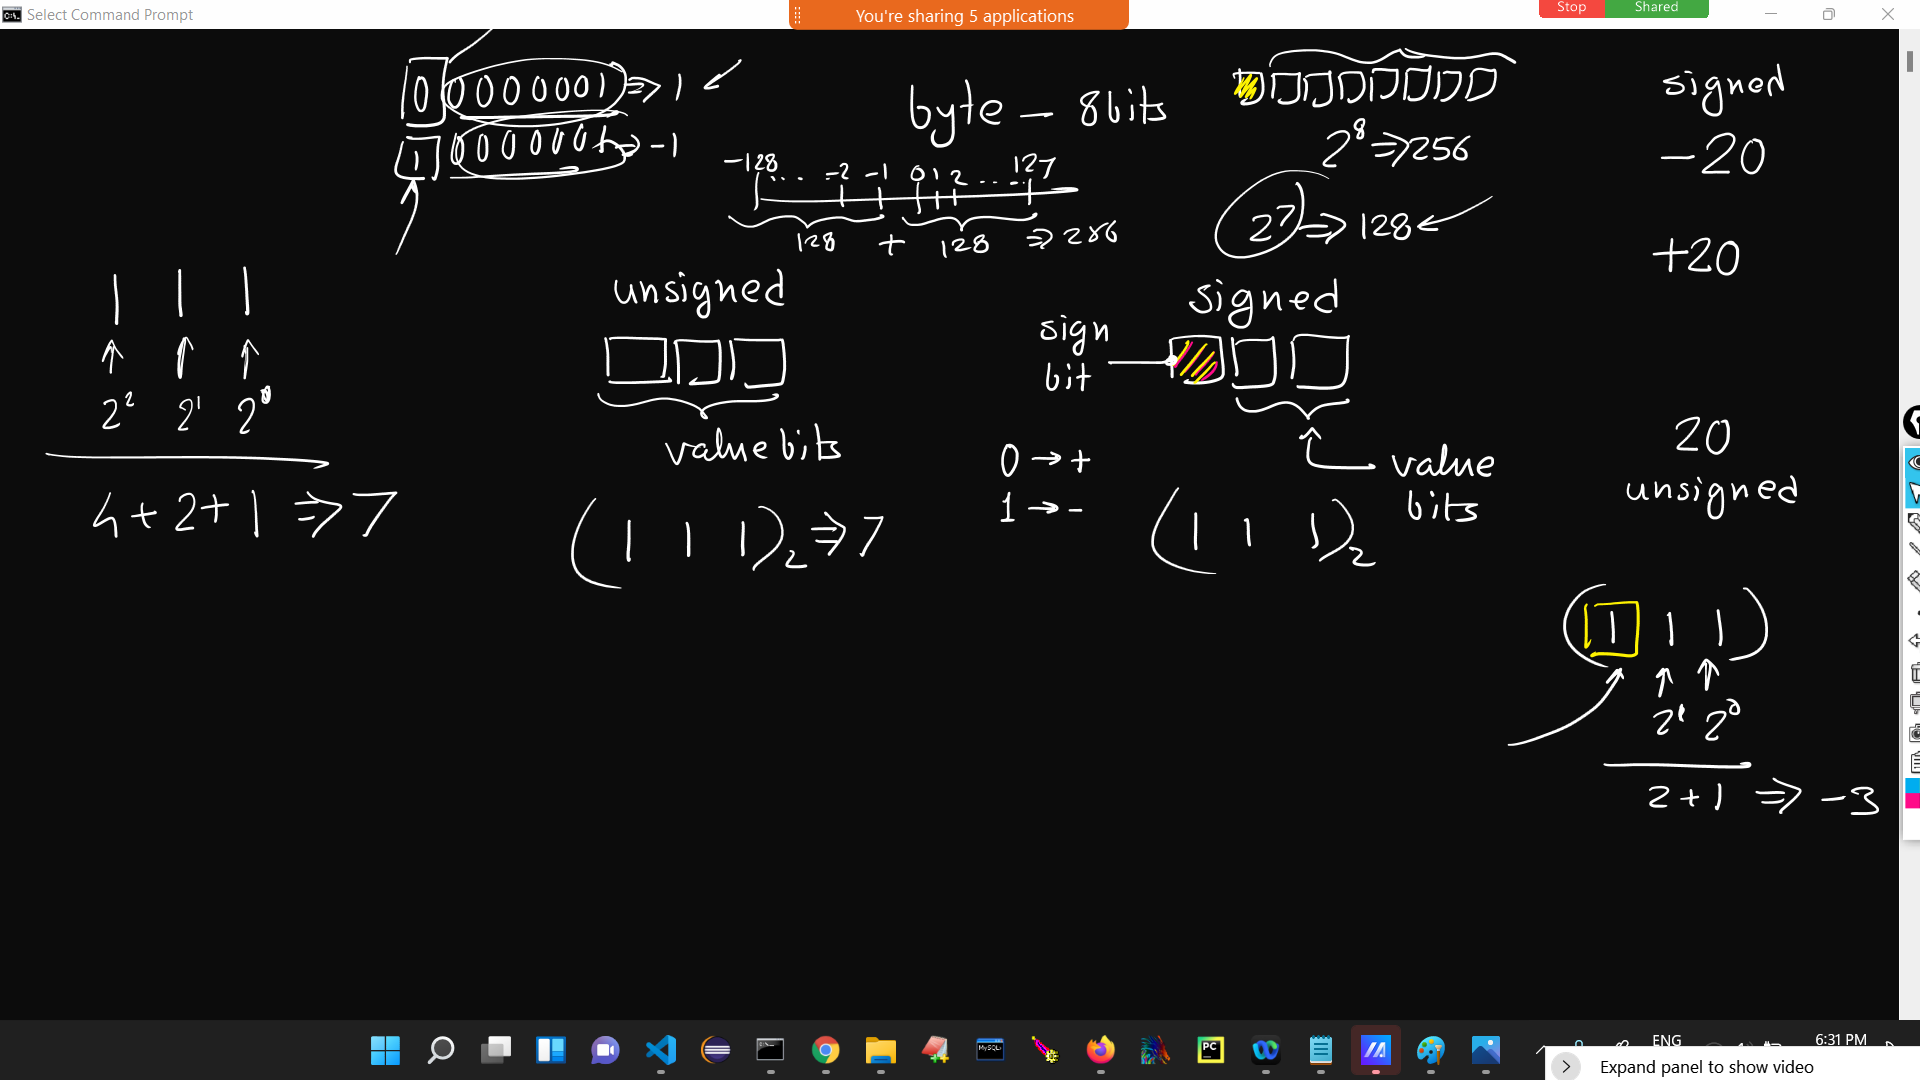 Select Command Prompt
You're sharing 5 applications
Stop Shared
0 0000001 => 1
1 0000001 => -1
byte - 8 bits
-128 ... -2 -1 0 1 2 ... 127
128 + 128 => 256
2^8 => 256
2^7 => 128
signed
-20
+20
20
unsigned
1 1 1
2^2 2^1 2^0
4 + 2 + 1 => 7
unsigned
value bits
(1 1 1)_2 => 7
signed
sign
bit
0 → +
1 → -
value
bits
(1 1 1)_2
(1 1 1)
2^1 2^0
2 + 1 => -3
MySQL
PC
ENG
6:31 PM
Expand panel to show video